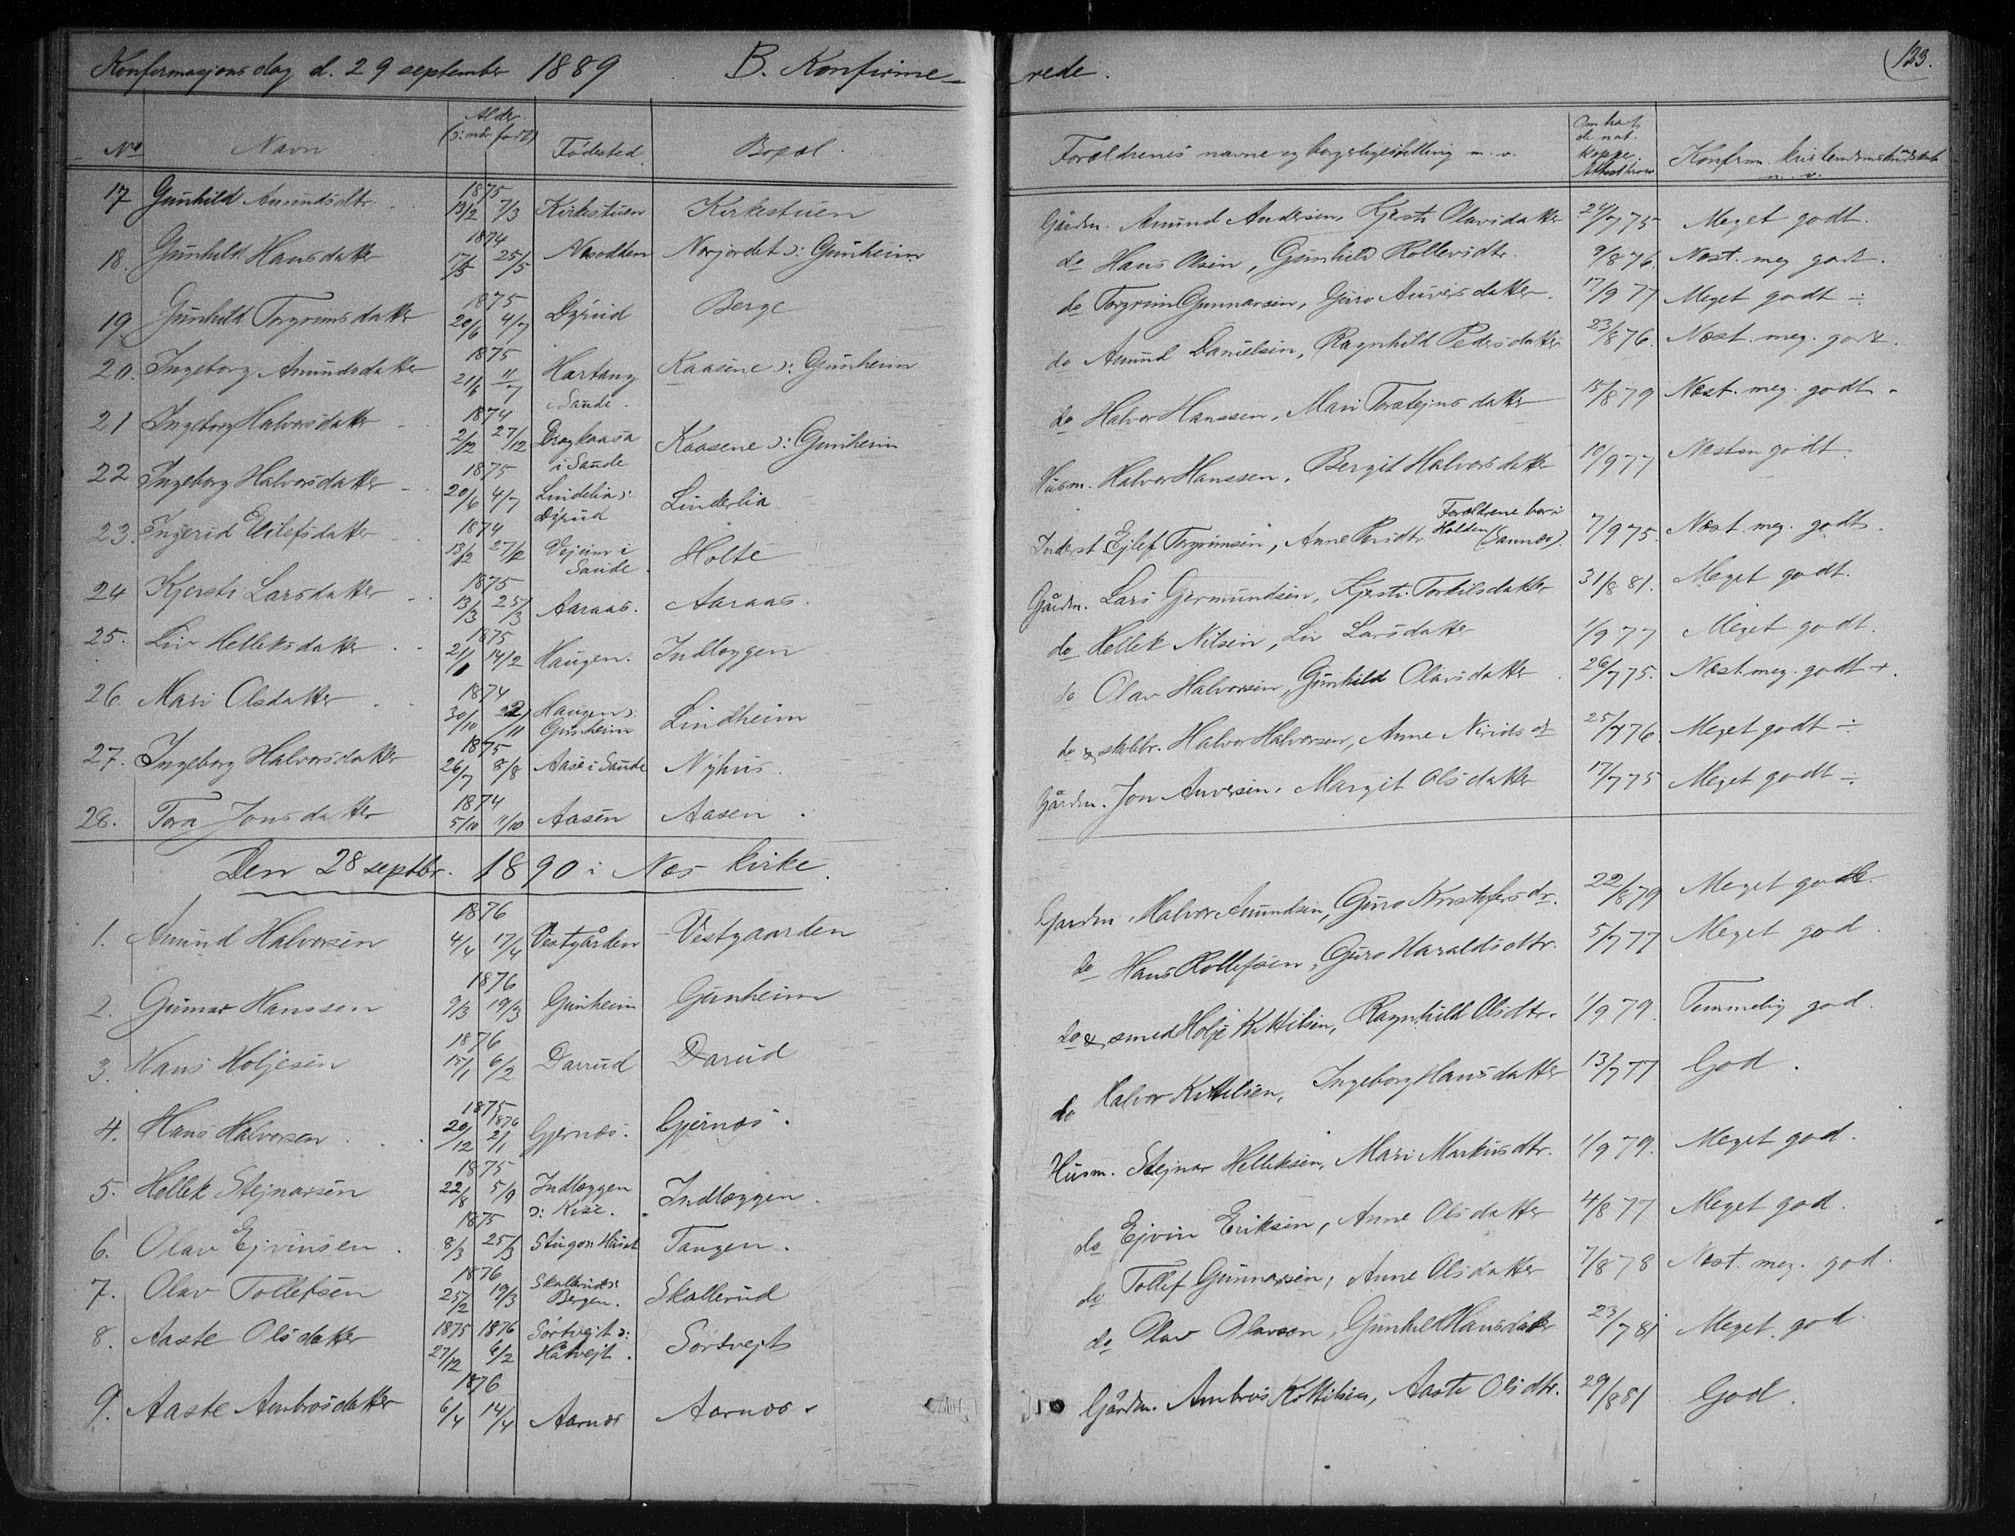 Konfirmasjonsdag d. 29 september 1889 B. Konfirme-
No Navn Alder (ɔ: når født) Fødested. Bopæl.
17 Gunhild Amundsdtr. 1875 13/2 7/3 Kirkestuen Kirkestuen
18. Gunhild Hansdatter 1874 17/5 25/5 Næsodden Norjordet ɔ: Gunheim
19. Gunhild Torgrimsdatter 1875 20/6 4/7 Dyrud Berge
20. Ingeborg Amundsdatter 1875 21/6 11/7 Hartang i Saude. Kaasene ɔ: Gunheim
21 Ingeborg Halvorsdatter 1874 2/12 27/12 i Saude Kaasene ɔ: Gunheim
22 Ingeborg Halvorsdatter 1875 20/6 4/7 Lindelia ɔ: Dyrud Linderlia
23. Ingerid Eilefsdatter 1874 13/12 27/12 Vejeim i Saude. Holte
24 Kjersti Larsdatter 1875 13/3 25/3 Aaraas. Aaraas.
25. Liv Helleksdatter 1875 21/1 14/2 Haugen. Indlæggen
26. Mari Olsdatter 1874 30/10 22/11 Haugen ɔ: Gunheim Lindheim
27. Ingeborg Halvorsdatter 1875 26/7 8/8 Aase i Saude Nyhus.
28. Tora Jonsdatter 1874 5/10 11/10 Aasen Aasen.
Den 28 septbr. 1890 i Næs kirke.
1. Amund Halvorsen 1876 4/4 17/4 Vestgården Vestgaarden
2. Gunnar Hanssen 1876 9/3 19/3 Gunheim Gunheim
3. Hans Holjesen 1876 15/1 6/2 Darrud Darud
4. Hans Halvorsen 1875 20/12 1876 2/1 Gjernæs. Gjernæs.
5. Hellek Stejnarsen 1875 22/8 5/9 Indlæggen ɔ: Kise. Indlæggen.
6. Olav Ejvinsen 1875 8/3 25/3 Tangen.
7. Olav Tollefsen 1876 25/2 19/3 Skallerud ɔ: Bergen. Skallerud
8. Aaste Olsdatter 1875 27/12 1876 6/2 Sørtvejt ɔ: Håtvejt. Sørtvejt
9. Aaste Ambrosdatter 1876 6/4 14/4 Aarnæs Aarnæs.
rede. 123.
Forældrenes navne og borgerlige stilling m. v. Om hat de nat. kopper. Konfirm. kristendomskundskab m. v.
Gårdm. Amund Andersen, Kjersti Olavsdatter 24/7 75 Meget godt.
do Hans Olsen, Gunhild Rollevsdtr. 9/8 76. Næst. meg godt.
do Torgrim Gunnarsen, Guro Auversdatter. 17/9 77 Meget godt ÷
do Amund Danielsen, Ragnhild Pedersdatter 23/8 76. Næst meg. godt.
do Halvor Hanssen, Mari Torstejnsdatter 15/8 79 Næst. meg. godt.
Husm. Halvor Hanssen, Bergit Halvorsdatter 10/9 77 Næsten godt.
Inderst. Ejlef Torgrimsen, Anne Persdtr. Forældrene bor i Holden (Vannæs). 7/9 75. Næst meg. godt.
Gårdm. Lars Germundsen, Kjersti Torkilsdatter 31/8 81. Meget godt.
do Hellek Nilsen, Liv Larsdatter 1/9 77 Meget godt.
do Olav Halvorsen, Gunhild Olavsdatter. 26/7 75. Næst meg. godt +.
do & skolebr. Halvor Halvorsen, Anne Nirids dr 25/7 76. Meget godt ÷
Gårdm. Jon Auversen, Margit Olsdatter 17/7 75 Meget godt ÷.
Gaardm. Halvor Amundsen, Guro Kristofersdr. 22/8 79 Meget god.
do Hans Rollefsen, Guro Haraldsdtr. 5/7 77 Meget god.
do & smed Holje Kittilsen, Ragnhild Olsdtr. 1/9 79. Temmelig god.
do Halvor Kittilsen, Ingeborg Hansdatter 13/7 77 God.
Husm. Stejnar Helleksen, Mari Markusdtr. 1/9 79. Meget god.
do Ejvin Eriksen, Anne Olsdatter 4/8 77 Meget god.
do Tollef Gunnarsen, Anne Olsdatter 7/8 78 Næst. meg. god.
do Olav Olavsen, Gunhild Hansdatter 23/7 81 Meget god.
Gårdm. Ambros Kittilsen, Aaste Olsdtr. 29/8 81 God.